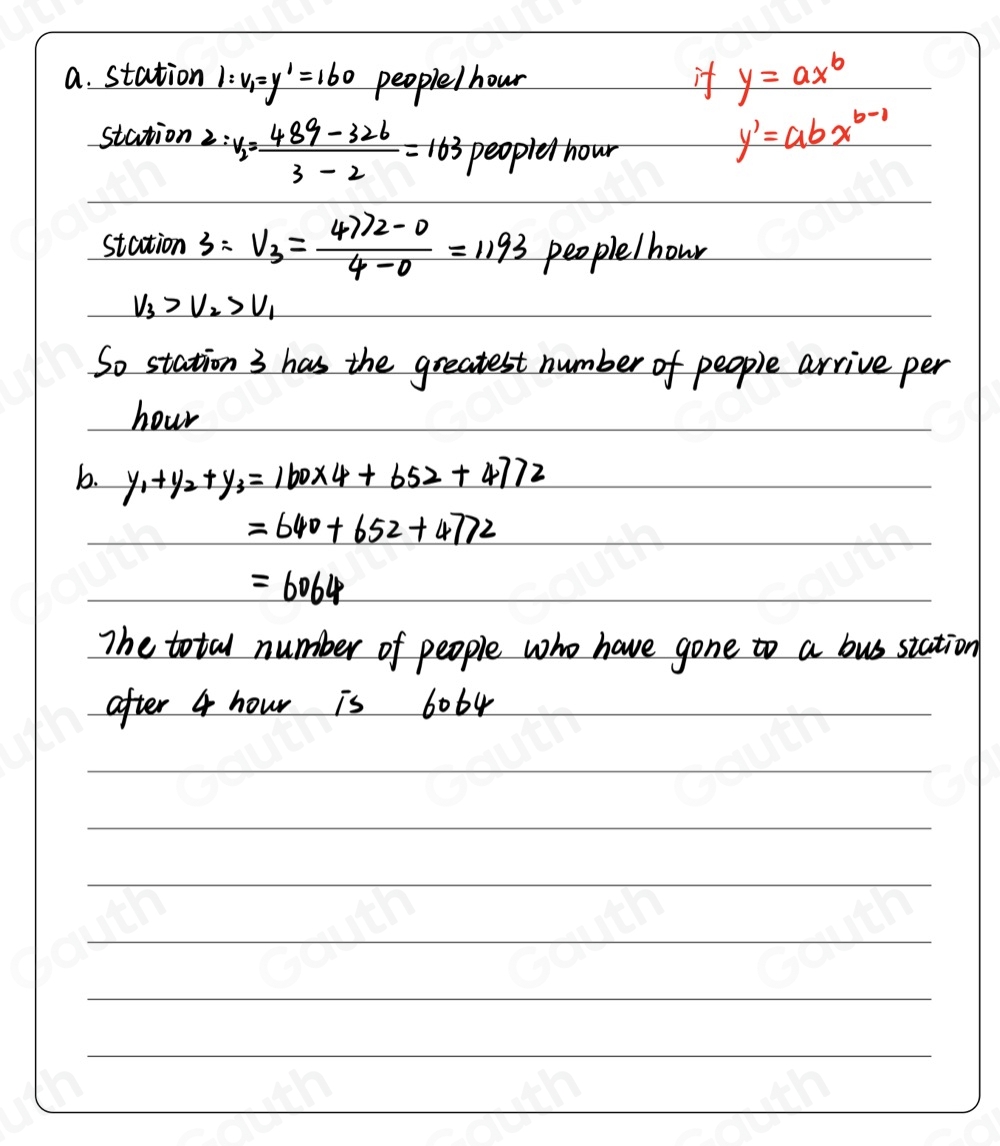 a. station 1: v₁=y'=160 people/hour
if y = axᵇ
y'=abxᵇ⁻¹
station 2: v₂= 489-326 / 3-2 = 163 people/hour
station 3: V₃ = 4772-0 / 4-0 = 1193 people/hour
V₃ > V₂ > V₁
So station 3 has the greatest number of people arrive per
hour
b. y₁+y₂+y₃ = 160×4 + 652 + 4772
= 640 + 652 + 4772
= 6064
The total number of people who have gone to a bus station
after 4 hour is 6064